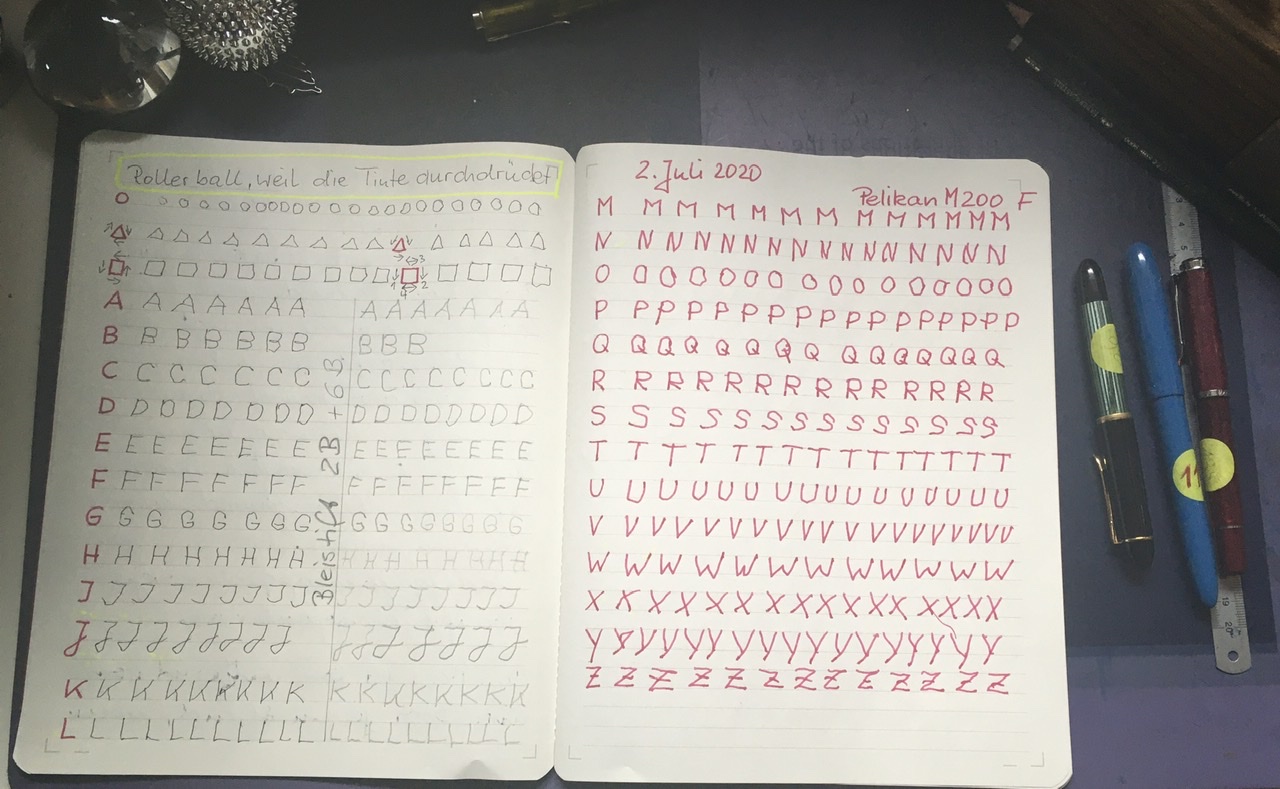 Rollerball, weil die Tinte durchdrückt
O O O O O O O O O O O O O O O O O O O O O O O
1 2 3 4
A A A A A A A A A A A A A A
B B B B B B B B B B
C C C C C C C C C C C C C C C
D D D D D D D D D D D D D D D D
E E E E E E E E E E E E E E E E
F F F F F F F F F F F F F F F F
G G G G G G G G G G G G G G G G
H H H H H H H H H H H H H H H H
J J J J J J J J J J J J J J J J J
J J J J J J J J J J J J J J J J
K K K K K K K K K K K K K K K K K
L L L L L L L L L L L L L L L L L L L
Bleistift 2B + 6B
2. Juli 2020
Pelikan M200 F
M M M M M M M M M M M M M
N N N N N N N N N N N N N N N N
O O O O O O O O O O O O O O O O
P P P P P P P P P P P P P P P P P
Q Q Q Q Q Q Q Q Q Q Q Q Q Q Q
R R R R R R R R R R R R R R
S S S S S S S S S S S S S S
T T T T T T T T T T T T T T T
U U U U U U U U U U U U U U U U
V V V V V V V V V V V V V V V V V
W W W W W W W W W W W W
X X X X X X X X X X X X X X X X
Y Y Y Y Y Y Y Y Y Y Y Y Y Y Y Y Y
Z Z Z Z Z Z Z Z Z Z Z Z Z
11